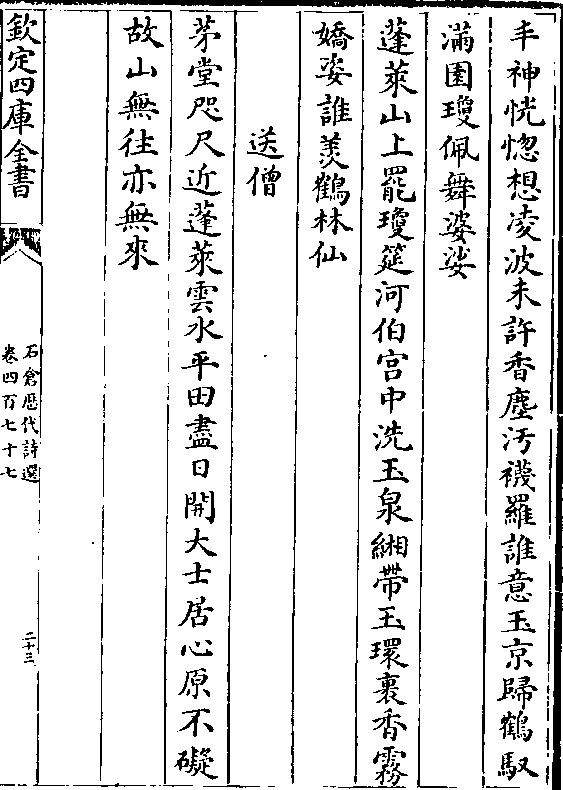 丰神恍惚想凌波未許香塵汚襪羅誰意玉京歸鶴馭
滿園瓊佩舞婆娑
蓬萊山上罷瓊筵河伯宫中洗玉泉緗帶玉環裹香霧
嬌姿誰羡鶴林仙
送僧
茅堂咫尺近蓬萊雲水平田盡日開大士居心原不礙
故山無往亦無來
欽定四庫全書
石倉歴代詩選
卷四百七十七
二十三